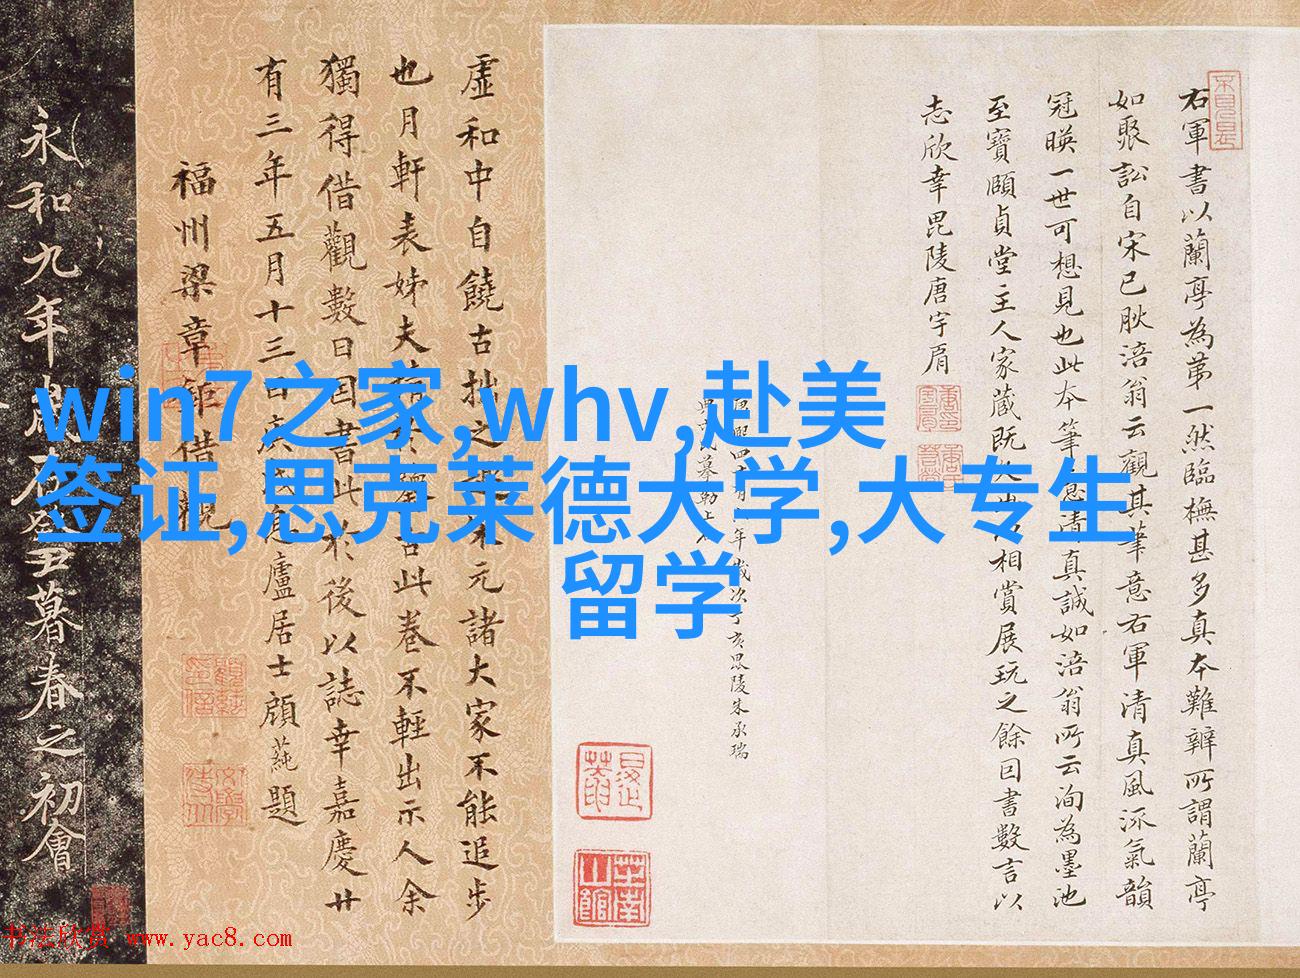 右軍書以蘭亭為第一然臨橅甚多真本難辧所謂蘭亭
如聚訟自宋已耿涪翁云觀其筆意右軍清真風流氣韻
冠暎一世可想見也此本筆息清真誠如涪翁所云洵為墨池
至寶頤貞堂主人家蔵既久出以相賞展玩之餘因書數言以
志欣幸毘陵唐宇肩
年歲次丁亥毘陵朱承瑞
虛和中自饒古拙之元諸大家不能追步
也月軒表姊夫此卷不輕出示人余
獨得借觀數日因書此於後以誌幸嘉慶廿
有三年五月十三日廬居士顧蒓題
福州梁章鉅借觀
永和九年暮春之初會
win7之家,whv,赴美
签证,思克莱德大学,大专生
留学
书法欣赏 www.yac8.com